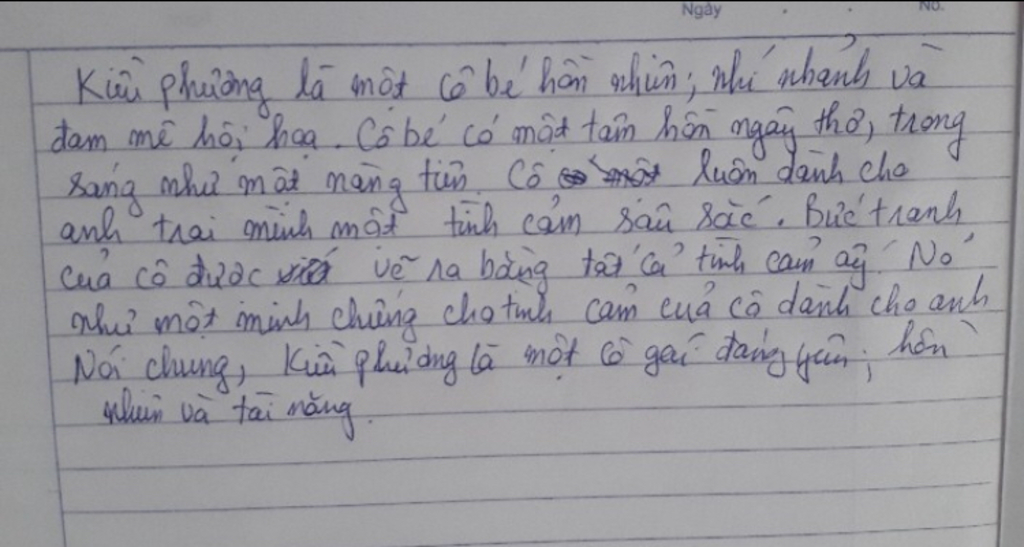 Ngày No.
Kiều Phương là một cô bé hồn nhiên, nhí nhảnh và
đam mê hội hoạ. Cô bé có một tâm hồn ngây thơ, trong
sáng như một nàng tiên. Cô luôn dành cho
anh trai mình một tình cảm sâu sắc. Bức tranh
của cô được vẽ ra bằng tất cả tình cảm ấy. Nó
như một minh chứng cho tình cảm của cô dành cho anh
Nói chung, Kiều Phương là một cô gái đáng yêu, hồn
nhiên và tài năng.